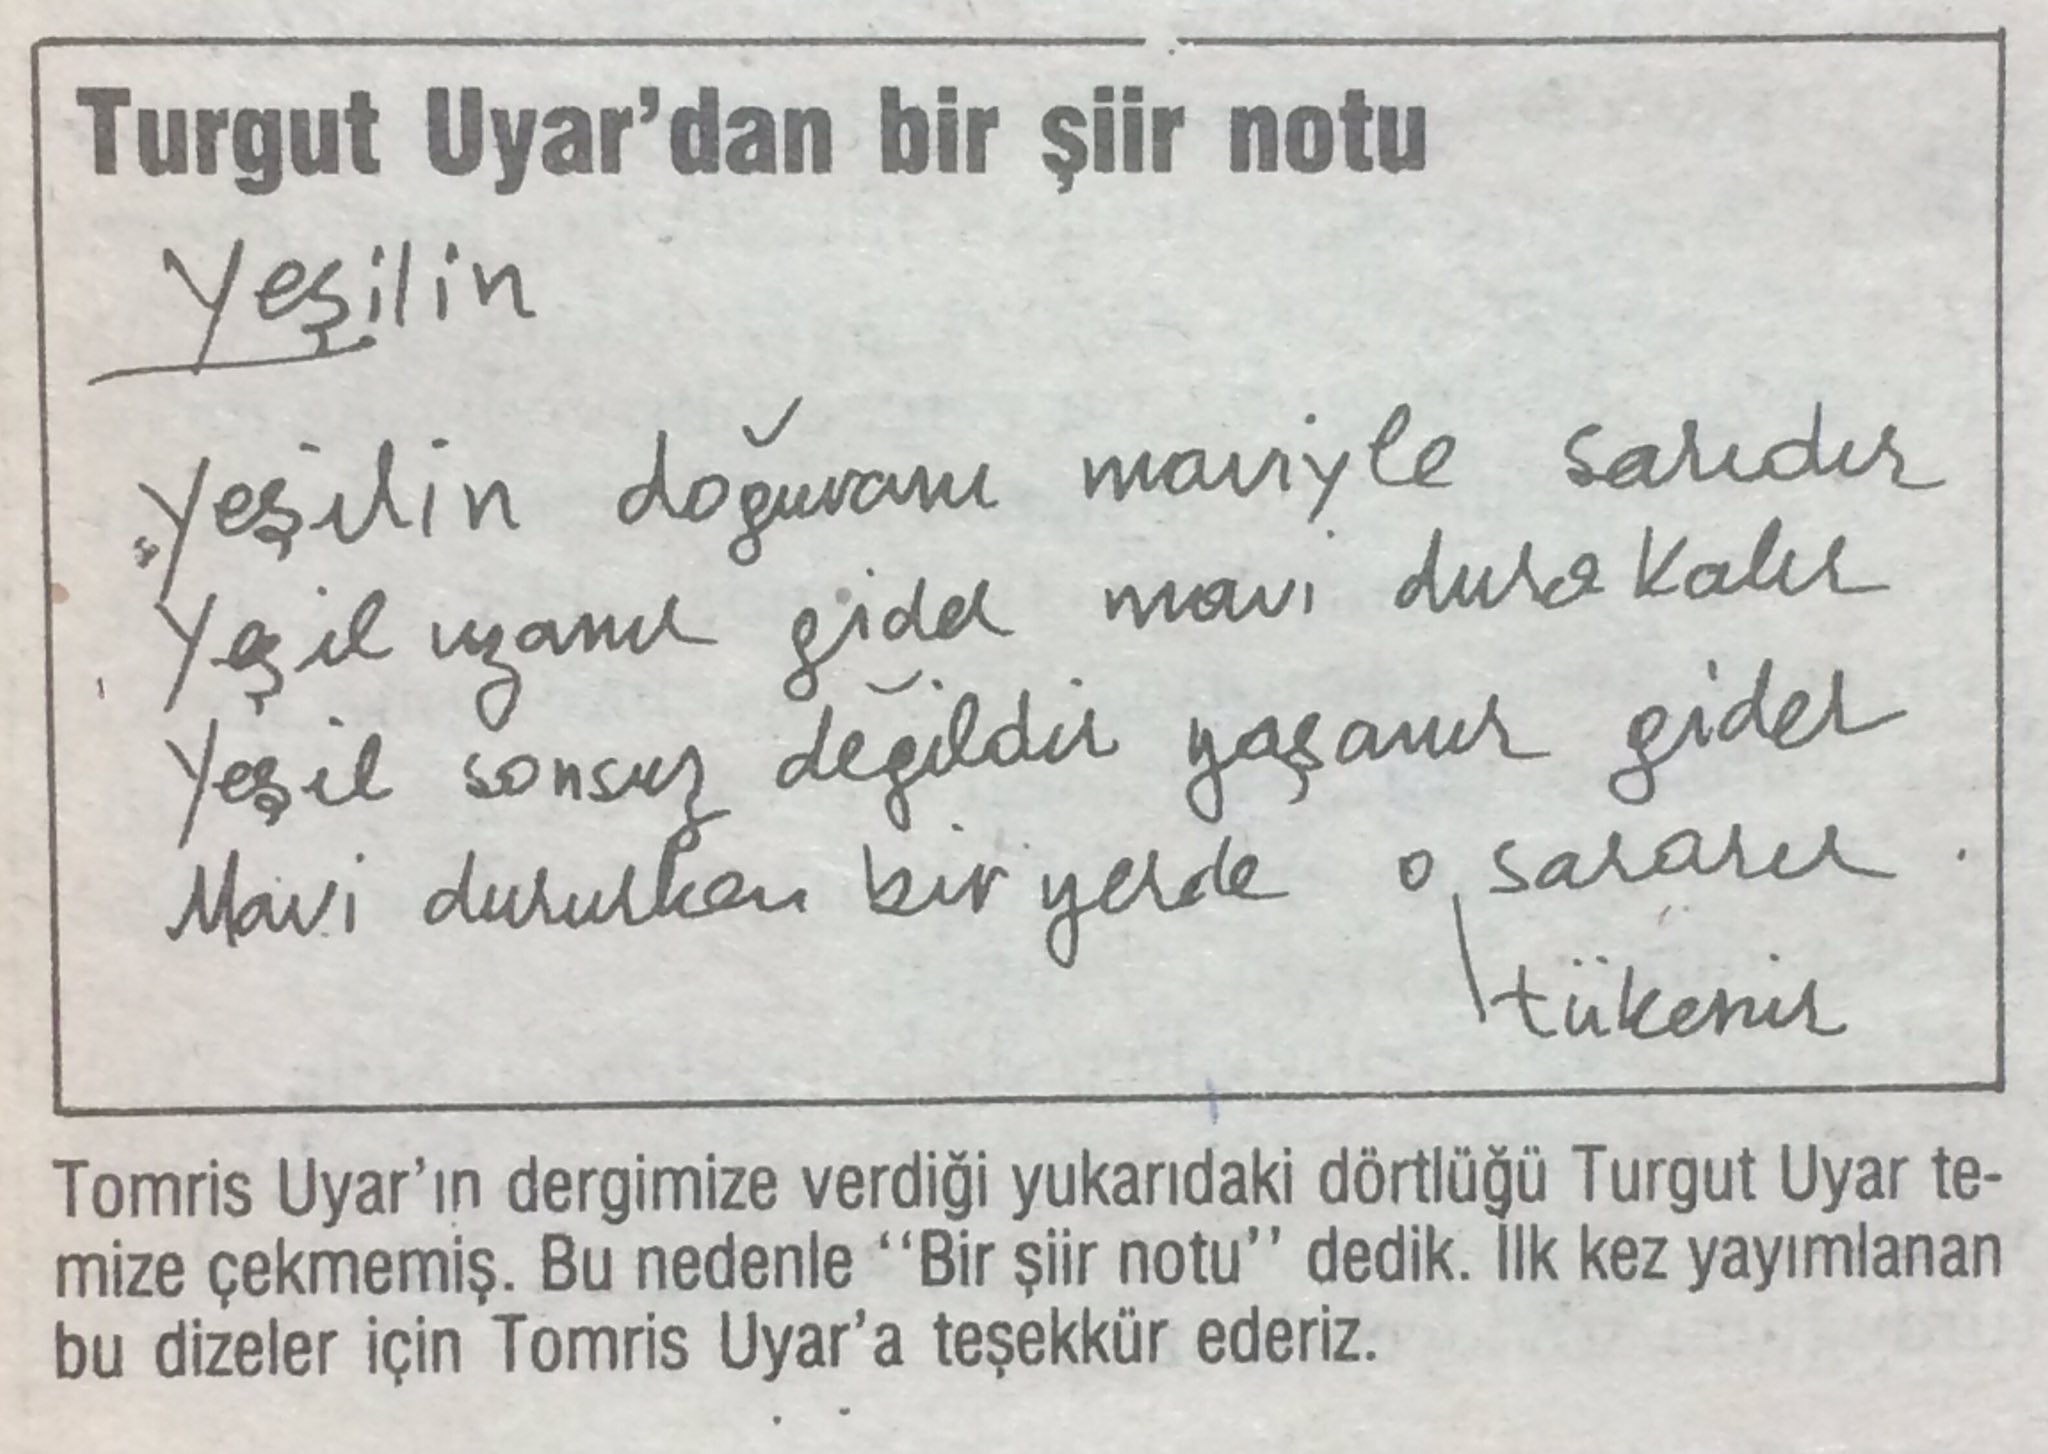 Turgut Uyar'dan bir şiir notu
Yeşilin
Yeşilin doğuranı maviyle sarıdır
Yeşil uzanır gider mavi dura kalır
Yeşil sonsuz değildir yaşanır gider
Mavi dururken bir yerde o, sararır
tükenir
Tomris Uyar'ın dergimize verdiği yukarıdaki dörtlüğü Turgut Uyar te-
mize çekmemiş. Bu nedenle "Bir şiir notu" dedik. İlk kez yayımlanan
bu dizeler için Tomris Uyar'a teşekkür ederiz.